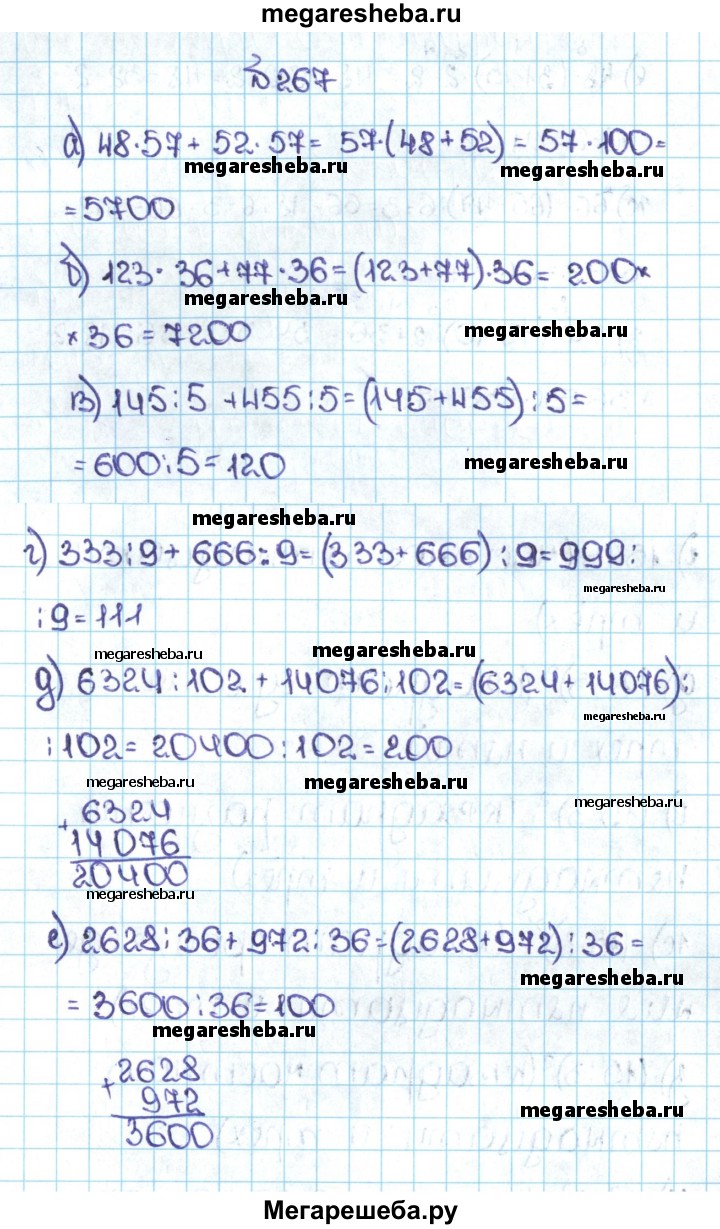 megaresheba.ru
№267
а) 48·57+ 52·57= 57·(48+52) = 57·100=
megaresheba.ru
megaresheba.ru
=5700
б) 123· 36+77·36=(123+77)·36= 200×
megaresheba.ru
×36=7200
megaresheba.ru
в) 145:5 +455:5=(145+455):5=
=600:5=120
megaresheba.ru
megaresheba.ru
г) 333:9+ 666:9=(333+666):9=999:
megaresheba.ru
:9=111
megaresheba.ru
megaresheba.ru
д) 6324:102 + 14076:102=(6324+14076):
megaresheba.ru
:102= 20400:102=200
megaresheba.ru
megaresheba.ru
megaresheba.ru
+ 6324
14076
20400
megaresheba.ru
е) 2628:36+972:36=(2628+972):36=
megaresheba.ru
= 3600:36=100
megaresheba.ru
+ 2628
972
megaresheba.ru
3600
Мегарешеба.ру